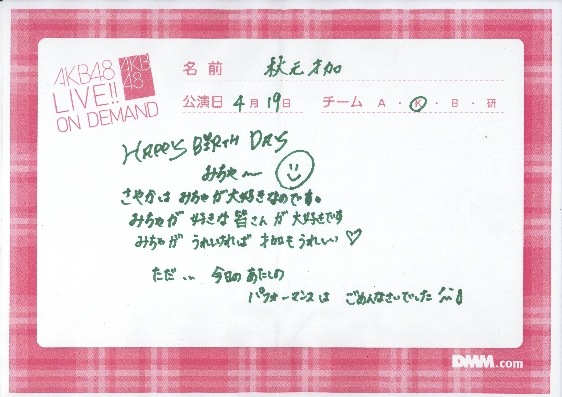 AKB48
LIVE!!
ON DEMAND
AKB
48
名前 秋元才加
公演日 4月19日 チーム A・K・B・研
HAPPY BIRTH DAY
みちゃ〜
さやかは みちゃが大好きなのです。
みちゃが 好きな皆さんが 大好きです
みちゃが うれしければ 才加も うれしい♡
ただ... 今日の あたしの
パフォーマンスは ごめんなさいでした
DMM.com